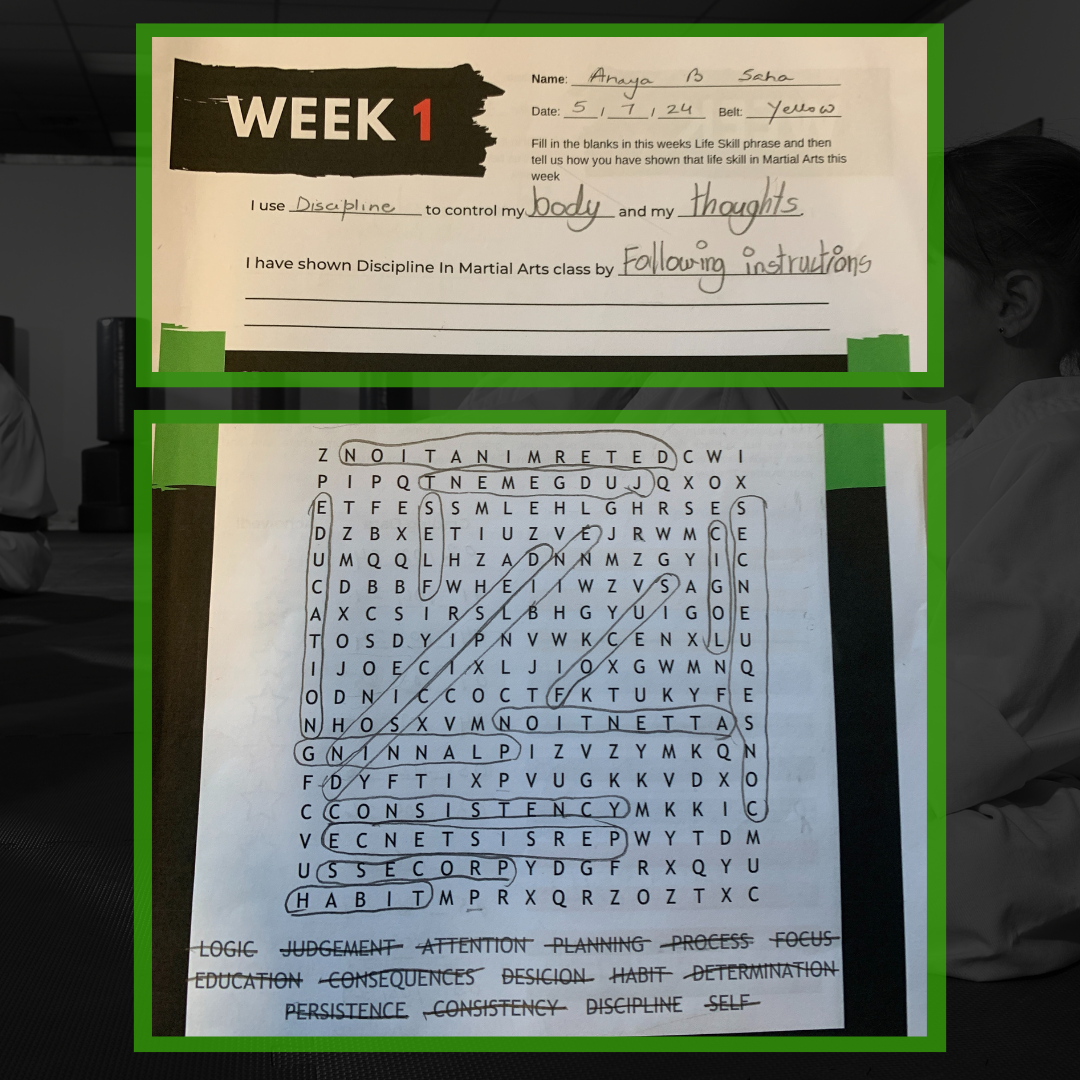 WEEK 1
Name: Anaya B Saha
Date: 5 / 7 / 24 Belt: Yellow
Fill in the blanks in this weeks Life Skill phrase and then
tell us how you have shown that life skill in Martial Arts this
week
I use Discipline to control my body and my thoughts.
I have shown Discipline In Martial Arts class by Following instructions
Z N O I T A N I M R E T E D C W I
P I P Q T N E M E G D U J Q X O X
E T F E S S M L E H L G H R S E S
D Z B X E T I U Z V E J R W M C E
U M Q Q L H Z A D N N M Z G Y I C
C D B B F W H E I I W Z V S A G N
A X C S I R S L B H G Y U I G O E
T O S D Y I P N V W K C E N X L U
I J O E C I X L J I O X G W M N Q
O D N I C C O C T F K T U K Y F E
N H O S X V M N O I T N E T T A S
G N I N N A L P I Z V Z Y M K Q N
F D Y F T I X P V U G K K V D X O
C C O N S I S T E N C Y M K K I C
V E C N E T S I S R E P W Y T D M
U S S E C O R P Y D G F R X Q Y U
H A B I T M P R X Q R Z O Z T X C
LOGIC JUDGEMENT ATTENTION PLANNING PROCESS FOCUS
EDUCATION CONSEQUENCES DESICION HABIT DETERMINATION
PERSISTENCE CONSISTENCY DISCIPLINE SELF